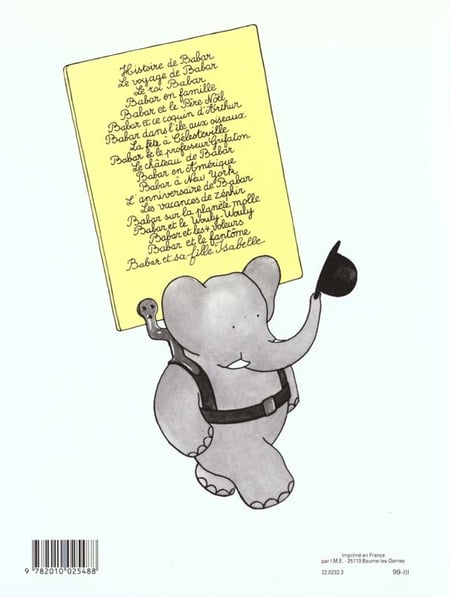 Histoire de Babar
Le voyage de Babar
Le roi Babar
Babar en famille
Babar et le Père Noël
Babar et ce coquin d'Arthur
Babar dans l'île aux oiseaux
La fête à Célesteville
Babar et le professeur Grifaton
Le château de Babar
Babar en Amérique
Babar à New York
L'anniversaire de Babar
Les vacances de Zéphir
Babar sur la planète molle
Babar et le Wouly-Wouly
Babar et les 4 voleurs
Babar et le fantôme
Babar et sa fille Isabelle
9 782010 025488
Imprimé en France
par I.M.E. - 25110 Baume-les-Dames
22.0232.3
99-III